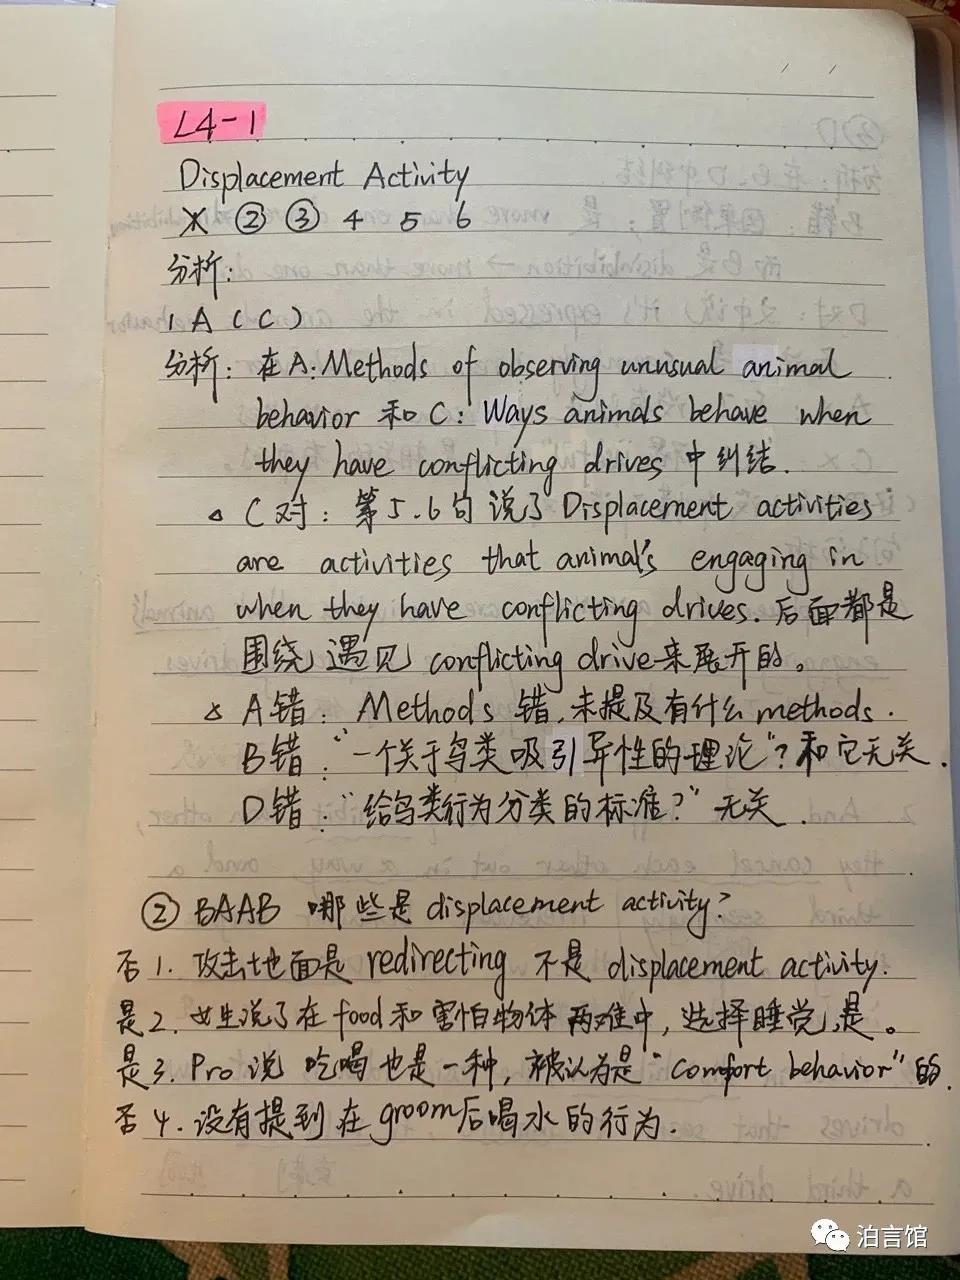 L4-1
Displacement Activity
② ③ 4 5 6
分析:
1 A (C)
分析: 在A:Methods of observing unusual animal
behavior 和C: Ways animals behave when
they have conflicting drives 中纠结.
C对: 第5.6句说了Displacement activities
are activities that animal's engaging in
when they have conflicting drives. 后面都是
围绕遇见 conflicting drive来展开的。
A错: Methods 错,未提及有什么methods.
B错: “一个关于鸟类吸引异性的理论”?和它无关.
D错: “给鸟类行为分类的标准?”无关.
② BAAB 哪些是displacement activity?
否1. 攻击地面是redirecting 不是displacement activity.
是2. 女生说了在food和害怕物体两难中,选择睡觉,是。
是3. Pro说 吃喝也是一种,被认为是“comfort behavior”的.
否4. 没有提到在groom后喝水的行为.
泊言馆